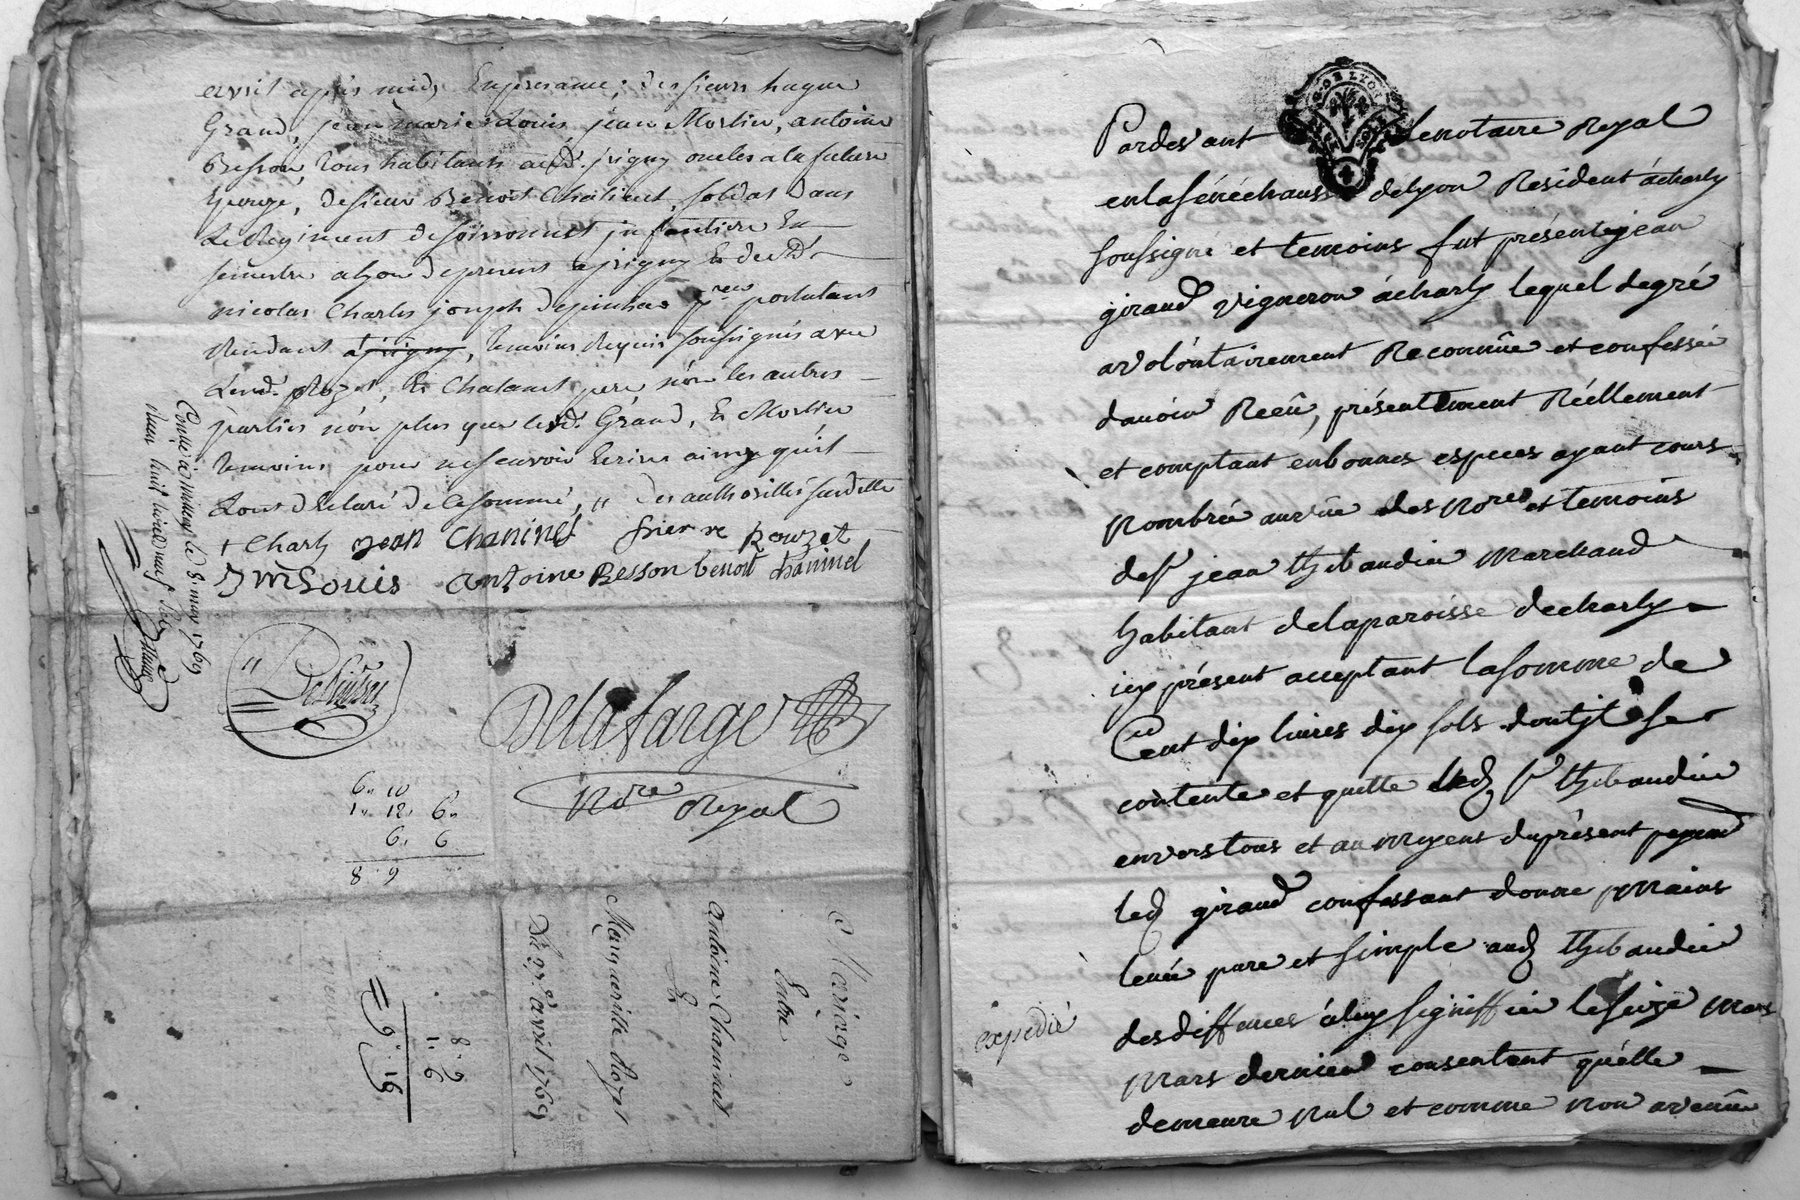 avril après midy En presance, des sieurs hugue
Grand, jean marie Louis, jean Morlieu, antoine
Besson, tous habitants aud. jrigny oncles a la future
Epouze, de sieur Benoit Chaninet, soldat dans
Le Regiment de soissonnois jnfanterie En
semestre a lyon de present a jrigny Et de Me
nicolas Charles joseph
postulant
Residant a jrigny, temoins Requis soussignés avec
Led. Rozet, Et Chaninet pere non les autres
parties non plus que lesd. Grand, Et Morlieu
temoins pour ne scavoir Ecrire ainsy qu'il
L'ont declaré de ce sommé, "
† Charly jean Chaninet pierre Rouzet
J M Louis antoine Besson benoit chaninel
Controlé a le 8. may 1769
Delafarge
Nore Royal
6" 10
1" 12" 6"
6" 6
8 " 9
Mariage
Entre
Antoine Chaninet
Et
Marguerite Rozet
Du 27e avril 1769
8 " 9
1 " 6
= 9 " 15
Pardevant Le notaire Royal
en la sénéchaussé de lyon Resident a charly
soussigne et temoins fut présent jean
giraud vigneron à charly lequel de gré
a volontairement Reconnue et confessée
d'avoir Reeû, présentement Réellement
et comptant en bonnes especes ayant cours
Nombrée au vüe des Nores et temoins
de sr jean thibaudier Marchand
habitant de la paroisse de charly
icy présent acceptant la somme de
Cent dix livres dix sols dont jl se
contente et quitte led sr thibaudier
envers tous et au moyent du présent payemt
led giraud confessant donne mains
levée pure et simple aud thibaudier
des deffences à luy signiffiée le seize Mars
Mars dernier consentant qu'elle
demeure Nul et comme Non avenüe
expedié